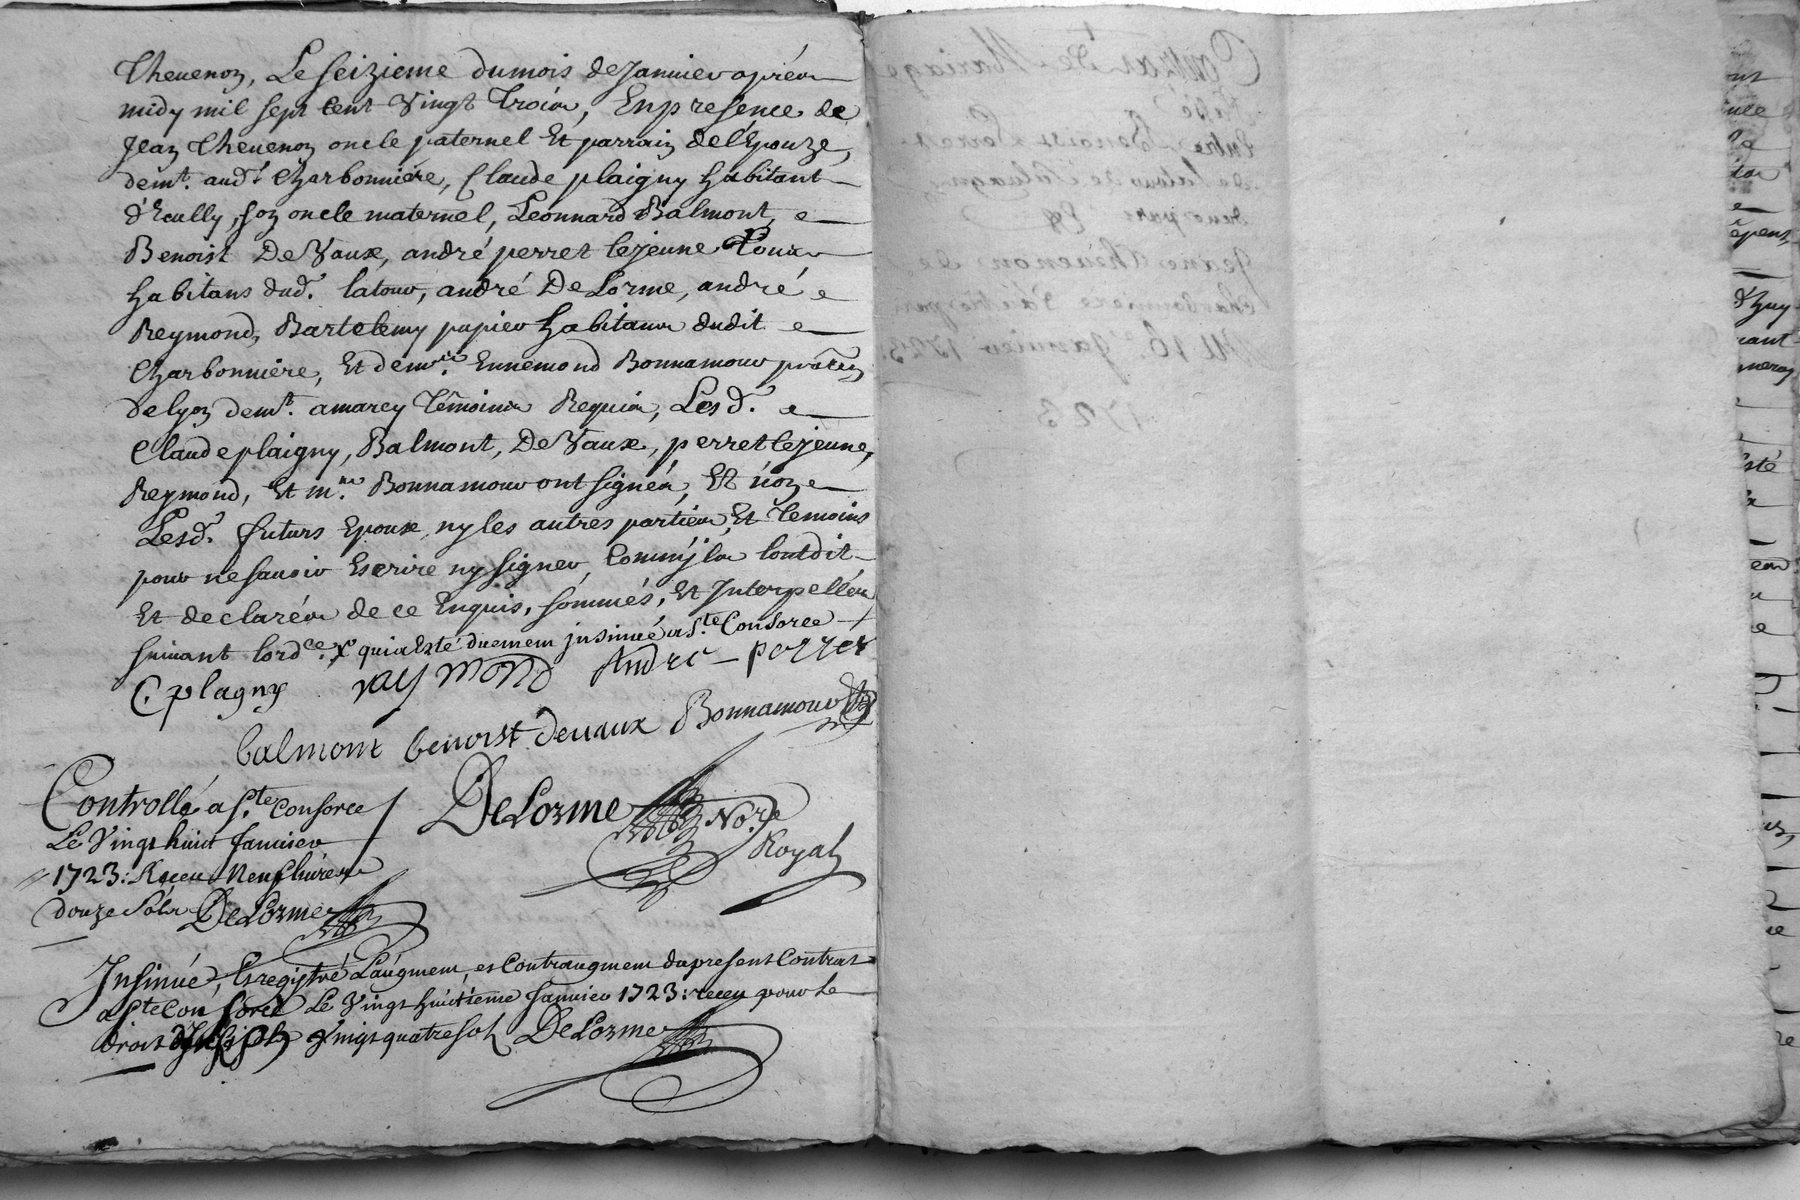 Thevenon, Le seizieme du mois de Janvier aprés
midy mil sept cent vingt trois, En presence de
Jean Thevenon oncle paternel Et parrain de l'Epouze,
demt. aud.t Charbonniére, Claude plaigny habitant
d'Ecully, son oncle maternel, Leonnard Balmont,
Benoist De Vaux, andré perret lejeune Tous
habitans dud. latour, andré De Lorme, andré
Reymond, Bartelemy papier habitans dudit
Charbonniére, Et de mre. Ennemond Bonnamour
de lyon demt. a marcy Témoins Requis, Lesd.
Claude plaigny, Balmont, De Vaux, perret lejeune,
Reymond, Et me. Bonnamour ont signés, Et non
Lesd. futurs Epoux, ny les autres parties, Et Temoins
pour ne savoir Escrire ny signer, Comm'ils l'ont dit
Et declarés de ce Enquis, sommés, Et Interpellés
suivant lordce. X qui a Esté duement insinué a Ste Consorce
C. plagny raymond Andre perret
balmont benoist devaux Bonnamour
Controllé a Ste Consorce
Le Vingt huit Janvier
1723: Receu Neuf livres
douze sols DeLorme
DeLorme Nore.
Royal
Insinué, Enregistré L'augment, et Contraugment du present Contrat
a Ste Consorce Le Vingt huitieme Janvier 1723: receu pour le
droit vingt quatre sols DeLorme
Contrat de Mariage
Passé
Entre Benoist Perret
de Latour de Salvagny
d'une part Et
Jeane Thevenon de
Charbonniere d'autre part
Du 16e Janvier 1723.
1723